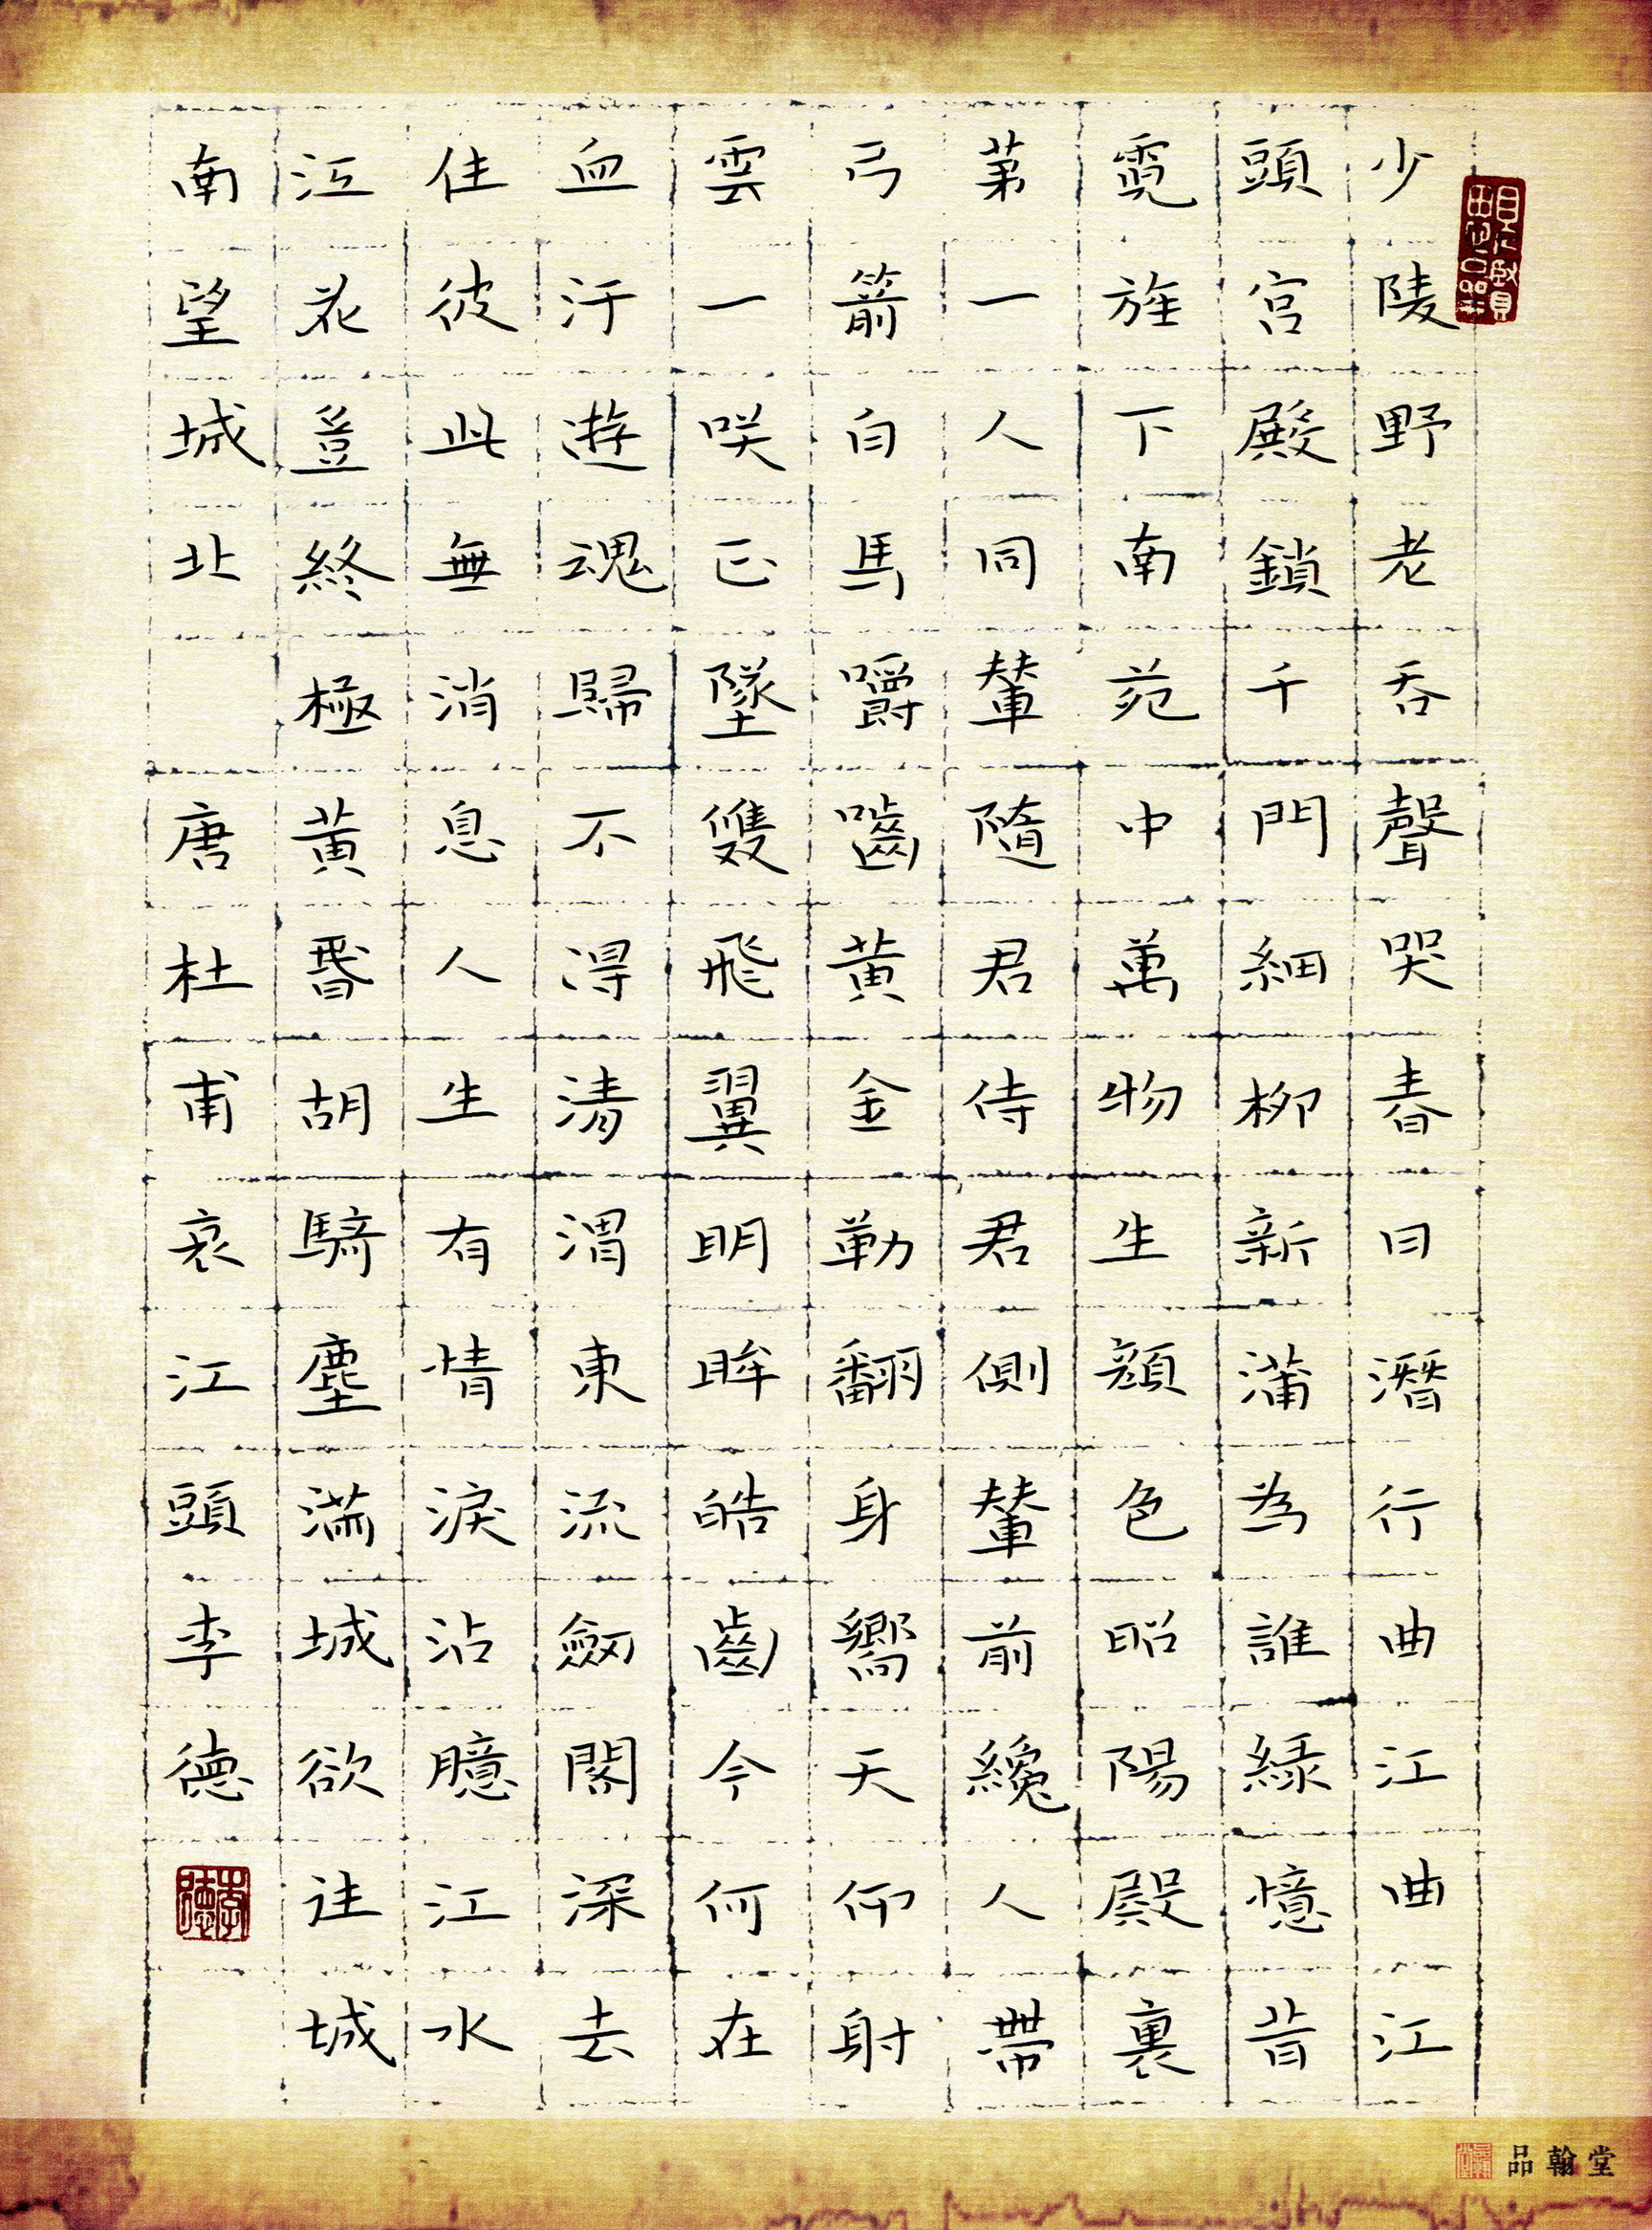 少陵野老吞聲哭春日潛行曲江曲江
頭宮殿鎖千門細柳新蒲為誰綠憶昔
霓旌下南苑中萬物生顏色昭陽殿裏
第一人同輦隨君侍君側輦前纔人帶
弓箭白馬嚼嚙黃金勒翻身嚮天仰射
雲一咲正墜雙飛翼明眸皓齒今何在
血汙遊魂歸不得清渭東流劒閣深去
住彼此無消息人生有情淚沾臆江水
江花豈終極黃昬胡騎塵滿城欲往城
南望城北 唐杜甫哀江頭李德
李德
品翰堂